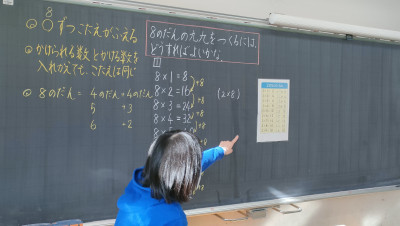 8
○ ○ずつこたえがふえる
○ かけられる数とかける数を
入れかえても、こたえは同じ
○ 8のだん = 4のだん+4のだん
5 +3
6 +2
8のだんの九九をつくるには、
どうすればよいかな。
8×1=8
8×2=16
8×3=24
8×4=32
+8
+8
+8
+8
+8
+8
(2×8)